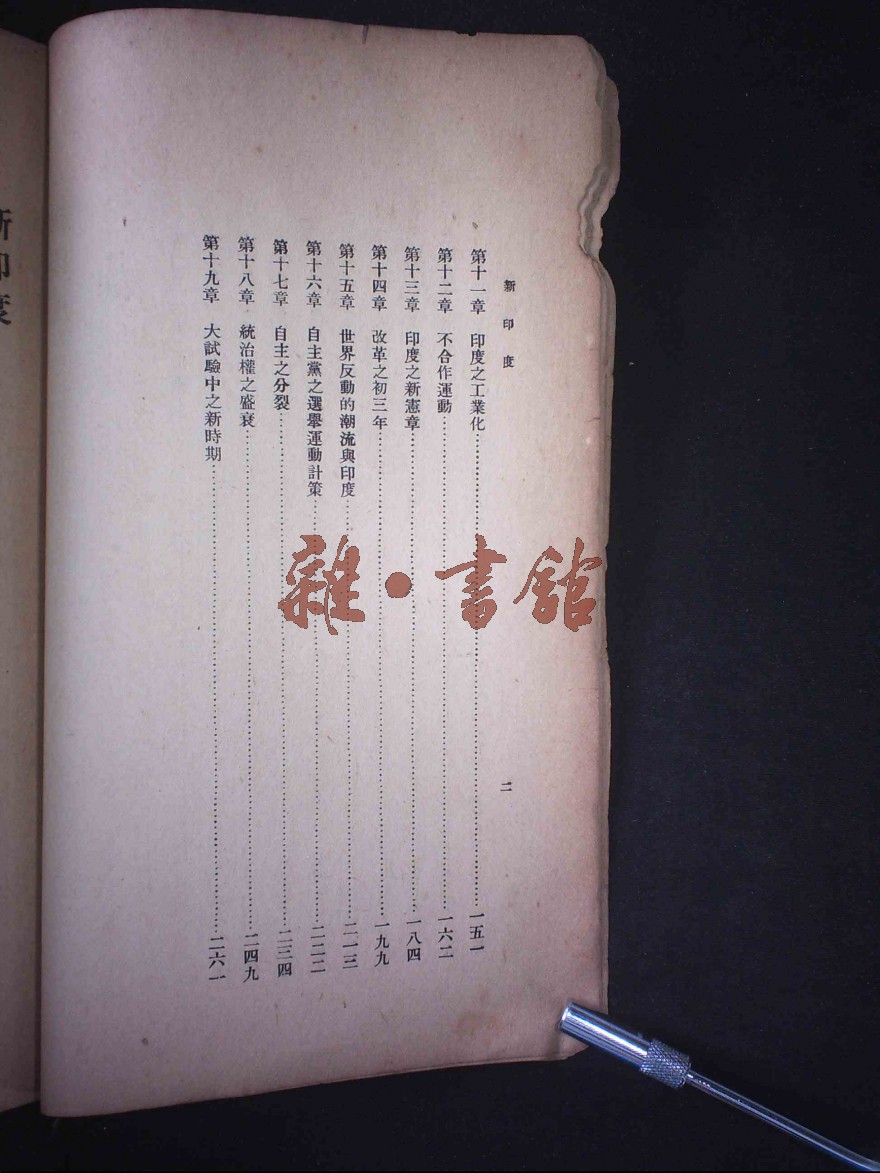 新印度
二
第十一章 印度之工業化……一五一
第十二章 不合作運動……一六二
第十三章 印度之新憲章……一八四
第十四章 改革之初三年……一九九
第十五章 世界反動的潮流與印度……二一三
第十六章 自主黨之選舉運動計策……二二二
第十七章 自主之分裂……二三四
第十八章 統治權之盛衰……二四九
第十九章 大試驗中之新時期……二六一
新印度
雜·書館